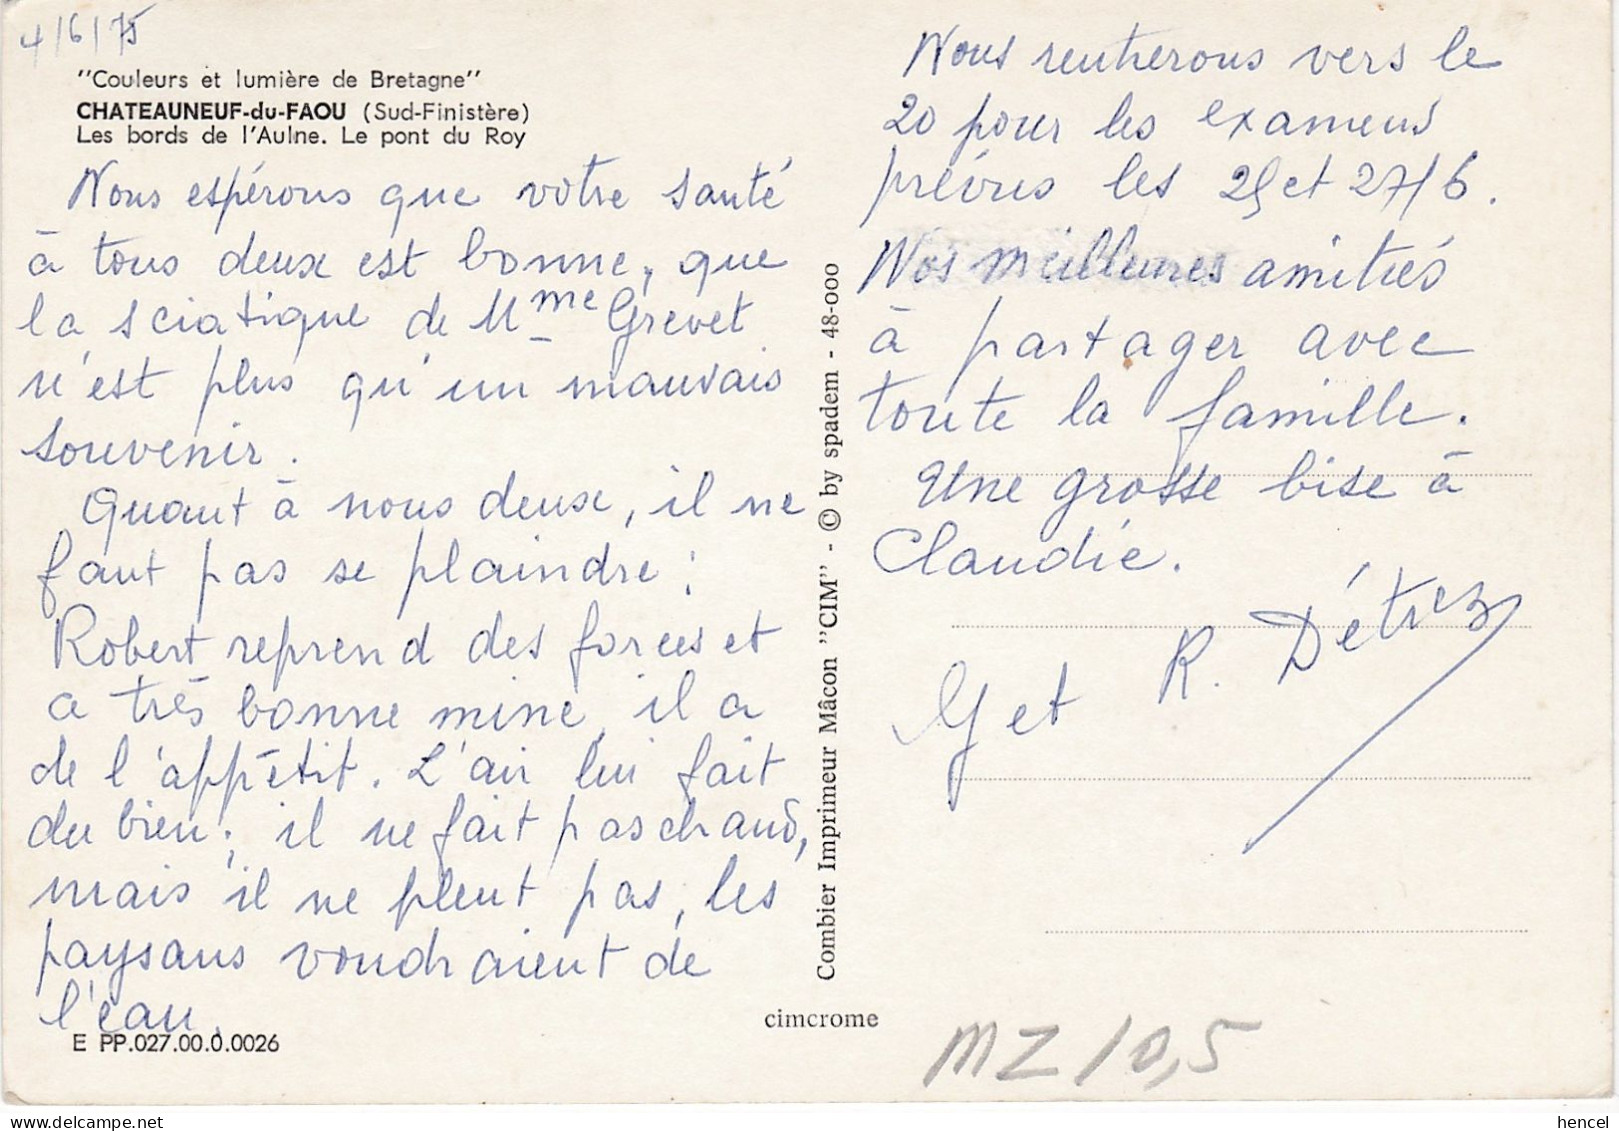 4/6/75
"Couleurs et lumière de Bretagne"
CHATEAUNEUF-du-FAOU (Sud-Finistère)
Les bords de l'Aulne. Le pont du Roy
Nous espérons que votre santé
à tous deux est bonne, que
la sciatique de Mme Grevet
n'est plus qu'un mauvais
souvenir.
Quant à nous deux, il ne
faut pas se plaindre ;
Robert reprend des forces et
a très bonne mine, il a
de l'appétit. L'air lui fait
du bien ; il ne fait pas chaud,
mais il ne pleut pas, les
paysans voudraient de
l'eau.
E PP.027.00.0.0026
Combier Imprimeur Mâcon "CIM" - © by spadem - 48-000
cimcrome
Nous rentrerons vers le
20 pour les examens
prévus les 25 et 27/6.
Nos meilleures amitiés
à partager avec
toute la famille.
Une grosse bise à
Claudie.
Y et R. Détrez
MZ/0,5
hencel